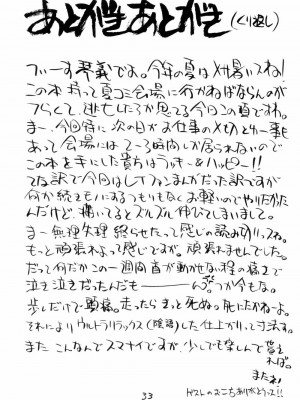 あとがきあとがき (くり返し)
ういーす琴義でよ。今年の夏はメサ暑いスね!
この本持って夏コミ会場に行かねばならんのが
ツラくて、逃亡したろか思てる今日この頃ですわ。
まー、今回特に次の日がお仕事の〆切という事も
あって会場には2~3時間しか居られないので
この本を手にした貴方はラッキー&ハッピー!!
てな訳で今回はレイファンまんがだった訳ですが
何か続きもんにするつもりもなくお軽いのでやりたかった
んだけど、描いてるとズルズル伸びてしまいまして。
まー無理矢理終らせたって感じの読み切りっスね。
もっと頑張れよって感じですが。頑張れませんでした。
だって何だかこの一週間首が動かせない程の痛さで
泣き泣きだったんだも――ん。つか今もな。
歩くだけで頭痛。走ったらきっと死ぬ。死にたかねーよ。
それによりウルトラリラックス(陰語)した仕上がりっス寸法す。
また こんなんでスマナイですが、少しでも楽しんで 貰
えれば。
またね!
33
ゲストのおこちありがとうっス!!